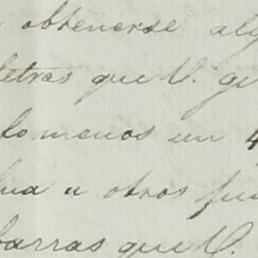 obtenerse alg
letras que V. gi
lo menos un 4
otros fu
barras que V.